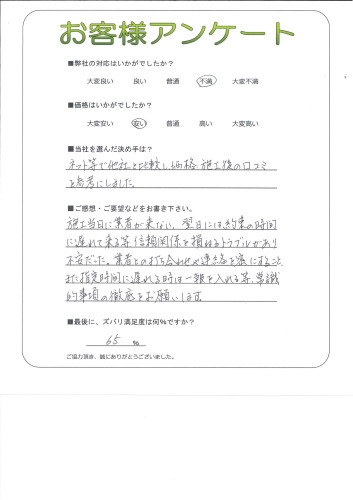 お客様アンケート
■弊社の対応はいかがでしたか？
大変良い 良い 普通 不満 大変不満
■価格はいかがでしたか？
大変安い 安い 普通 高い 大変高い
■当社を選んだ決め手は？
ネット等で他社と比較し、価格、施工後の口コミ
を参考にしました。
■ご感想・ご要望などをお書き下さい。
施工当日に業者が来ない、翌日には約束の時間
に遅れて来る等、信頼関係を損ねるトラブルがあり
不安だった。業者との打ち合わせや連絡を密にすること、
また指定時間に遅れる時は一報を入れる等、常識
的事項の徹底をお願いします。
■最後に、ズバリ満足度は何％ですか？
65 %
ご協力頂き、誠にありがとうございました。